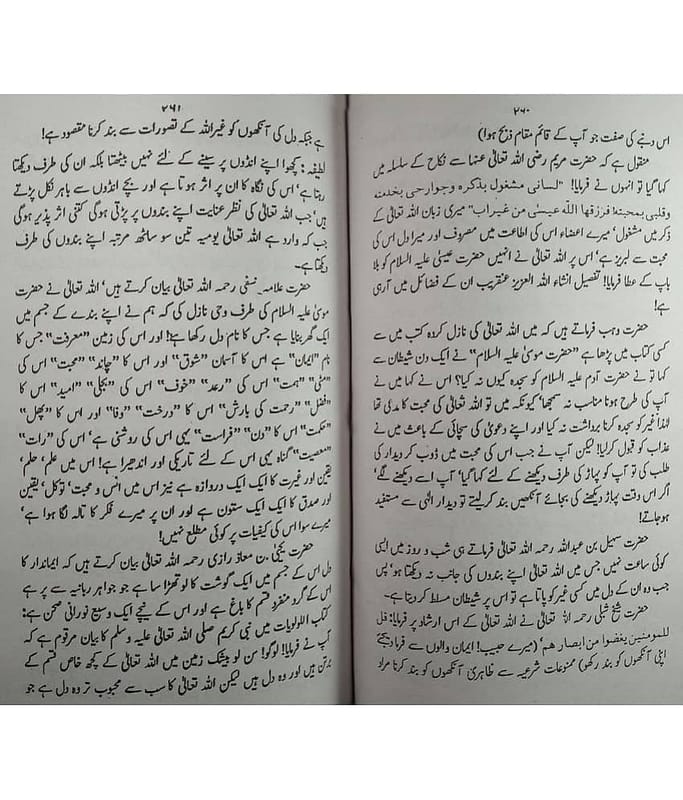 ۲۶۰
اس دنبے کی صفت جو آپ کے قائم مقام ذبح ہوا)
منقول ہے کہ حضرت مریم رضی اللہ تعالیٰ عنہا سے نکاح کے سلسلہ میں
کہا گیا تو انہوں نے فرمایا! "لسانی مشغول بذکرہ و جوارحی بخدمتہ
وقلبی بمحبتہ فرزقها اللّٰه عیسیٰ من غیراب" میری زبان اللہ تعالیٰ کے
ذکر میں مشغول' میرے اعضاء اس کی اطاعت میں مصروف اور میرا دل اس کی
محبت سے لبریز ہے' اس پر اللہ تعالیٰ نے انہیں حضرت عیسیٰ علیہ السلام کو بلا
باپ کے عطا فرمایا! تفصیل انشاء اللہ العزیز عنقریب ان کے فضائل میں آرہی
ہے!
حضرت وہب فرماتے ہیں کہ میں اللہ تعالیٰ کی نازل کردہ کتب میں سے
کسی کتاب میں پڑھا ہے "حضرت موسیٰ علیہ السلام" نے ایک دن شیطان سے
کہا تو نے حضرت آدم علیہ السلام کو سجدہ کیوں نہ کیا؟ اس نے کہا میں نے
آپ کی طرح ہونا مناسب نہ سمجھا' کیونکہ میں تو اللہ تعالیٰ کی محبت کا مدعی تھا
لہٰذا غیر کو سجدہ کرنا برداشت نہ کیا اور اپنے دعویٰ کی سچائی کے باعث میں نے
عذاب کو قبول کرلیا! لیکن آپ نے جب اس کی محبت میں ڈوب کر دیدار کی
طلب کی تو آپ کو پہاڑ کی طرف دیکھنے کے لئے کہا گیا' آپ اسے دیکھنے لگے'
اگر اس وقت پہاڑ دیکھنے کی بجائے آنکھیں بند کرلیتے تو دیدار الٰہی سے مستفید
ہوجاتے!
حضرت سہیل بن عبداللہ رحمہ اللہ تعالیٰ فرماتے ہی شب و روز میں ایسی
کوئی ساعت نہیں جس میں اللہ تعالیٰ اپنے بندوں کی جانب نہ دیکھتا ہو' پس
جب وہ ان کے دل میں کسی غیر کو پاتا ہے تو اس پر شیطان مسلط کردیتا ہے۔
حضرت شیخ شبلی رحمہ اللہ تعالیٰ نے اللہ تعالیٰ کے اس ارشاد پر فرمایا: قل
للمومنین یغضوا من ابصار هم' (میرے حبیب! ایمان والوں سے فرما دیجئے
اپنی آنکھوں کو بند رکھو) ممنوعات شرعیہ سے ظاہری آنکھوں کو بند کرنا مراد
۲۶۱
ہے جبکہ دل کی آنکھوں کو غیراللہ کے تصورات سے بند کرنا مقصود ہے!
لطیفہ: کچھوا اپنے انڈوں پر سینے کے لئے نہیں بیٹھتا بلکہ ان کی طرف دیکھتا
رہتا ہے' اس کی نگاہ کا ان پر اثر ہوتا ہے اور بچے انڈوں سے باہر نکل پڑتے
ہیں' جب اللہ تعالیٰ کی نظر عنایت اپنے بندوں پر پڑتی ہوگی کتنی اثر پذیر ہوگی
جب کہ وارد ہے اللہ تعالیٰ یومیہ تین سو ساٹھ مرتبہ اپنے بندوں کی طرف
دیکھتا ہے۔
حضرت علامہ نسفی رحمہ اللہ تعالیٰ بیان کرتے ہیں' اللہ تعالیٰ نے حضرت
موسیٰ علیہ السلام کی طرف وحی نازل کی کہ ہم نے اپنے بندے کے جسم میں
ایک گھر بنایا ہے جس کا نام دل رکھا ہے! اور اس کی زمین "معرفت" جس کا
نام "ایمان" ہے اس کا آسمان "شوق" اور اس کا "چاند" "محبت" اس کی
"مٹی" "ہمت" اس کی "رعد" "خوف" اس کی "بجلی" "امید" اس کا
"فضل" "رحمت کی بارش" اس کا "درخت" "وفا" اور اس کا "پھل"
"حکمت" اس کا "دن" "فراست" یہی اس کی روشنی ہے' اس کی "رات"
"معصیت" گناہ یہی اس کے لئے تاریکی اور اندھیرا ہے! اس میں علم' حلم'
یقین اور غیرت کا ایک ایک دروازہ ہے نیز اس میں انس و محبت' توکل' یقین
اور صدق کا ایک ایک ستون ہے اور ان پر میرے فکر کا تالہ لگا ہوا ہے'
میرے سوا اس کی کیفیات پر کوئی مطلع نہیں!
حضرت یحییٰ بن معاذ رازی رحمہ اللہ تعالیٰ بیان کرتے ہیں کہ ایماندار کا
دل اس کے جسم میں ایک گوشت کا لوتھڑا سا ہے جو جواہر ربانیہ سے پر ہے
اس کے گرد منفرد قسم کا باغ ہے اور اس کے نیچے ایک وسیع نورانی صحن ہے:
کتاب اللولویات میں نبی کریم صلی اللہ تعالیٰ علیہ وسلم کا بیان مرقوم ہے کہ
آپ نے فرمایا! لوگو! سن لو بیشک زمین میں اللہ تعالیٰ کے کچھ خاص قسم کے
برتن ہیں اور وہ دل ہیں لیکن اللہ تعالیٰ کا سب سے محبوب تر وہ دل ہے جو